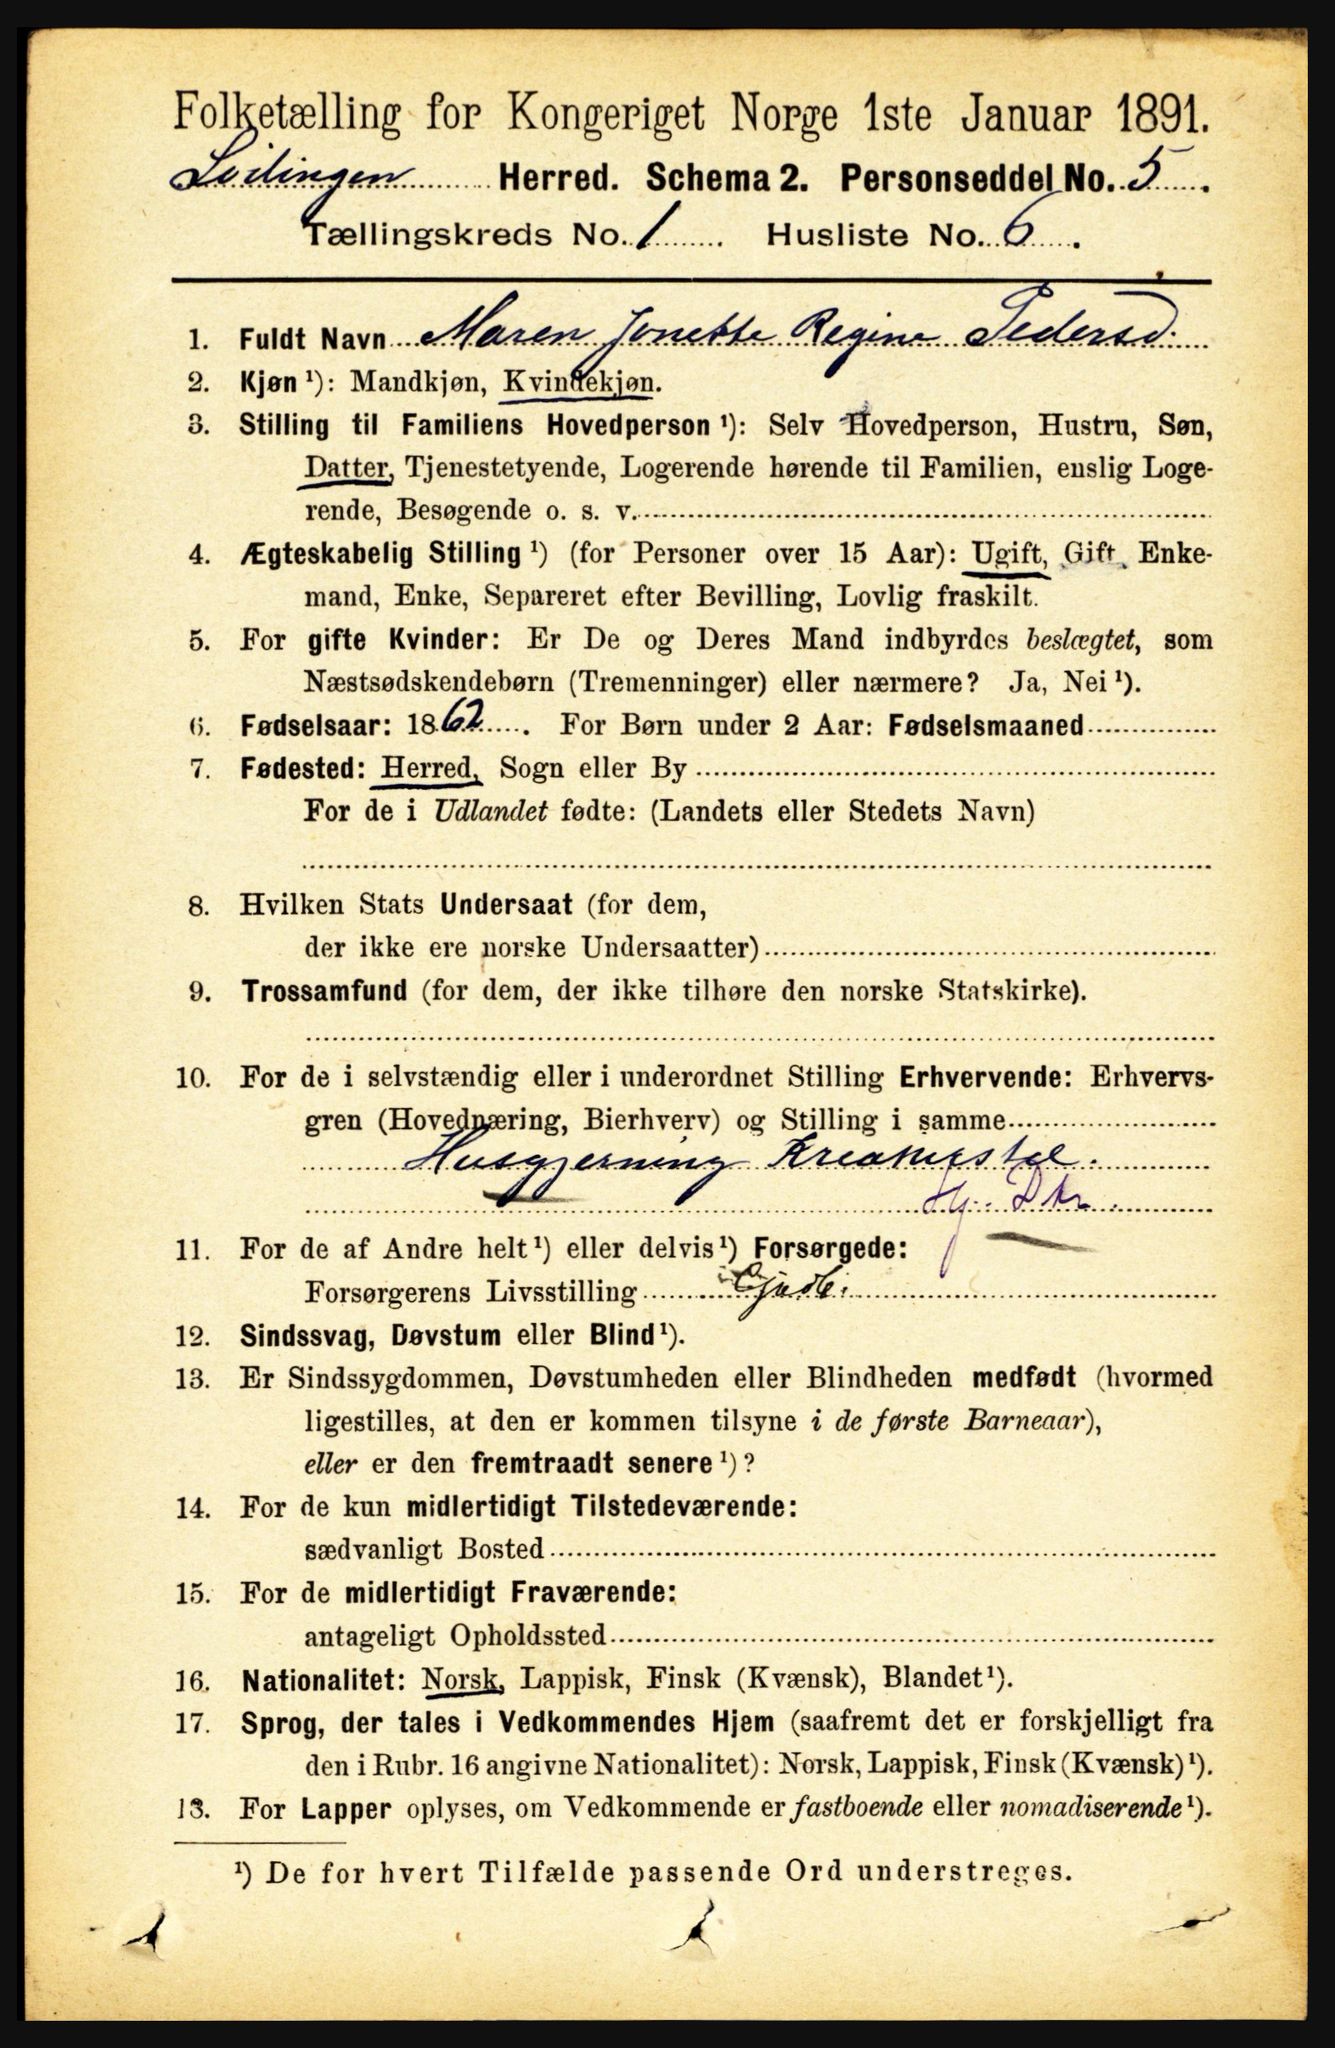 Folketælling for Kongeriget Norge 1ste Januar 1891.
Lødingen Herred. Schema 2. Personseddel No. 5.
Tællingskreds No. 1. Husliste No. 6.
1. Fuldt Navn Maren Jonette Regine Pedersd.
2. Kjøn ¹): Mandkjøn, Kvindekjøn.
3. Stilling til Familiens Hovedperson ¹): Selv Hovedperson, Hustru, Søn,
Datter, Tjenestetyende, Logerende hørende til Familien, enslig Loge-
rende, Besøgende o. s. v.
4. Ægteskabelig Stilling ¹) (for Personer over 15 Aar): Ugift, Gift, Enke-
mand, Enke, Separeret efter Bevilling, Lovlig fraskilt.
5. For gifte Kvinder: Er De og Deres Mand indbyrdes beslægtet, som
Næstsødskendebørn (Tremenninger) eller nærmere? Ja, Nei ¹).
6. Fødselsaar: 1862. For Børn under 2 Aar: Fødselsmaaned
7. Fødested: Herred, Sogn eller By
For de i Udlandet fødte: (Landets eller Stedets Navn)
8. Hvilken Stats Undersaat (for dem,
der ikke ere norske Undersaatter)
9. Trossamfund (for dem, der ikke tilhøre den norske Statskirke).
10. For de i selvstændig eller i underordnet Stilling Erhvervende: Erhvervs-
gren (Hovednæring, Bierhverv) og Stilling i samme
Husgjerning Kreaturstel.
11. For de af Andre helt ¹) eller delvis ¹) Forsørgede:
Forsørgerens Livsstilling
12. Sindssvag, Døvstum eller Blind ¹).
13. Er Sindssygdommen, Døvstumheden eller Blindheden medfødt (hvormed
ligestilles, at den er kommen tilsyne i de første Barneaar),
eller er den fremtraadt senere ¹)?
14. For de kun midlertidigt Tilstedeværende:
sædvanligt Bosted
15. For de midlertidigt Fraværende:
antageligt Opholdssted
16. Nationalitet: Norsk, Lappisk, Finsk (Kvænsk), Blandet ¹).
17. Sprog, der tales i Vedkommendes Hjem (saafremt det er forskjelligt fra
den i Rubr. 16 angivne Nationalitet): Norsk, Lappisk, Finsk (Kvænsk) ¹).
18. For Lapper oplyses, om Vedkommende er fastboende eller nomadiserende ¹).
¹) De for hvert Tilfælde passende Ord understreges.